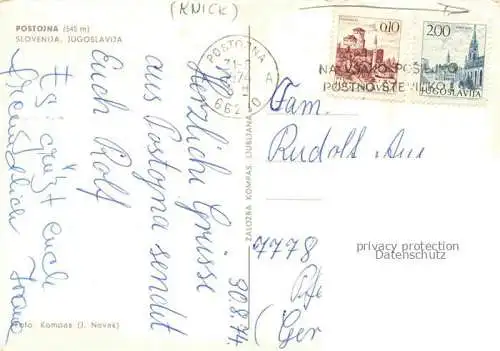 (KNICK)
POSTOJNA (545 m)
SLOVENIJA, JUGOSLAVIJA
Herzliche Grüsse
aus Postojna sendet
Euch Rolf
Es grüßt euch
freundlich Franc
30.8.74.
Foto Kompas (J. Novak)
ZALOŽBA KOMPAS, LJUBLJANA
POSTOJNA
31-
74-
A
662 0
0,10
2,00
JUGOSLAVIJA
NA VSAKO POŠILJKO
POSTNO ŠTEVILKO
Fam.
Rudolf
7778
Pfe
(Ger
privacy protection
Datenschutz